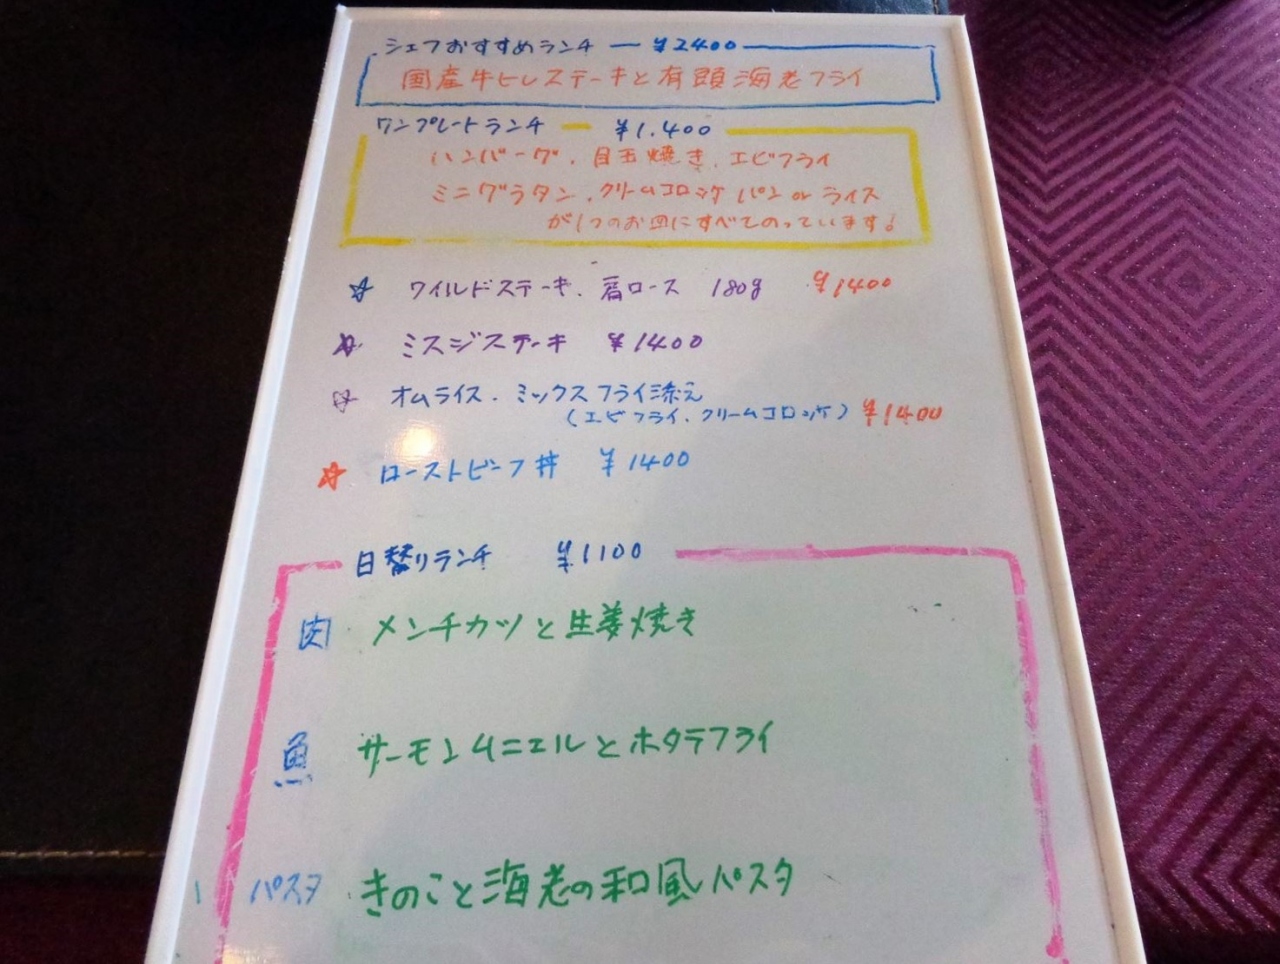 シェフおすすめランチ ー ¥2400
国産牛ヒレステーキと有頭海老フライ
ワンプレートランチ ー ¥1.400
ハンバーグ、目玉焼き、エビフライ
ミニグラタン、クリームコロッケ パン or ライス
が1つのお皿にすべてのっています!
☆ ワイルドステーキ、肩ロース 180g ¥1400
☆ ミスジステーキ ¥1400
☆ オムライス・ミックスフライ添え
(エビフライ、クリームコロッケ) ¥1400
☆ ローストビーフ丼 ¥1400
日替りランチ ¥1100
肉 メンチカツと生姜焼き
魚 サーモンムニエルとホタテフライ
パスタ きのこと海老の和風パスタ